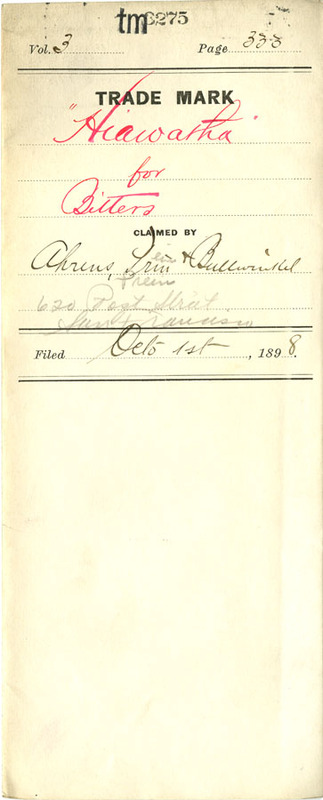 tm 3275
Vol. 3 Page 333
TRADE MARK
"Hiawatha"
for
Bitters
CLAIMED BY
Ahrens, & Bullwinkel
Prein
620 Post Street
San Francisco
Filed Oct 1st, 1898